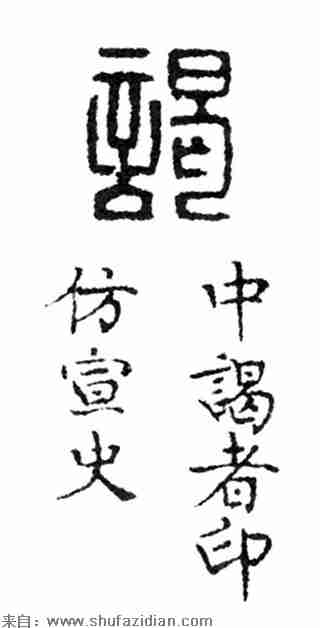 謁
中謁者印
仿宣史
来自：www.shufazidian.com